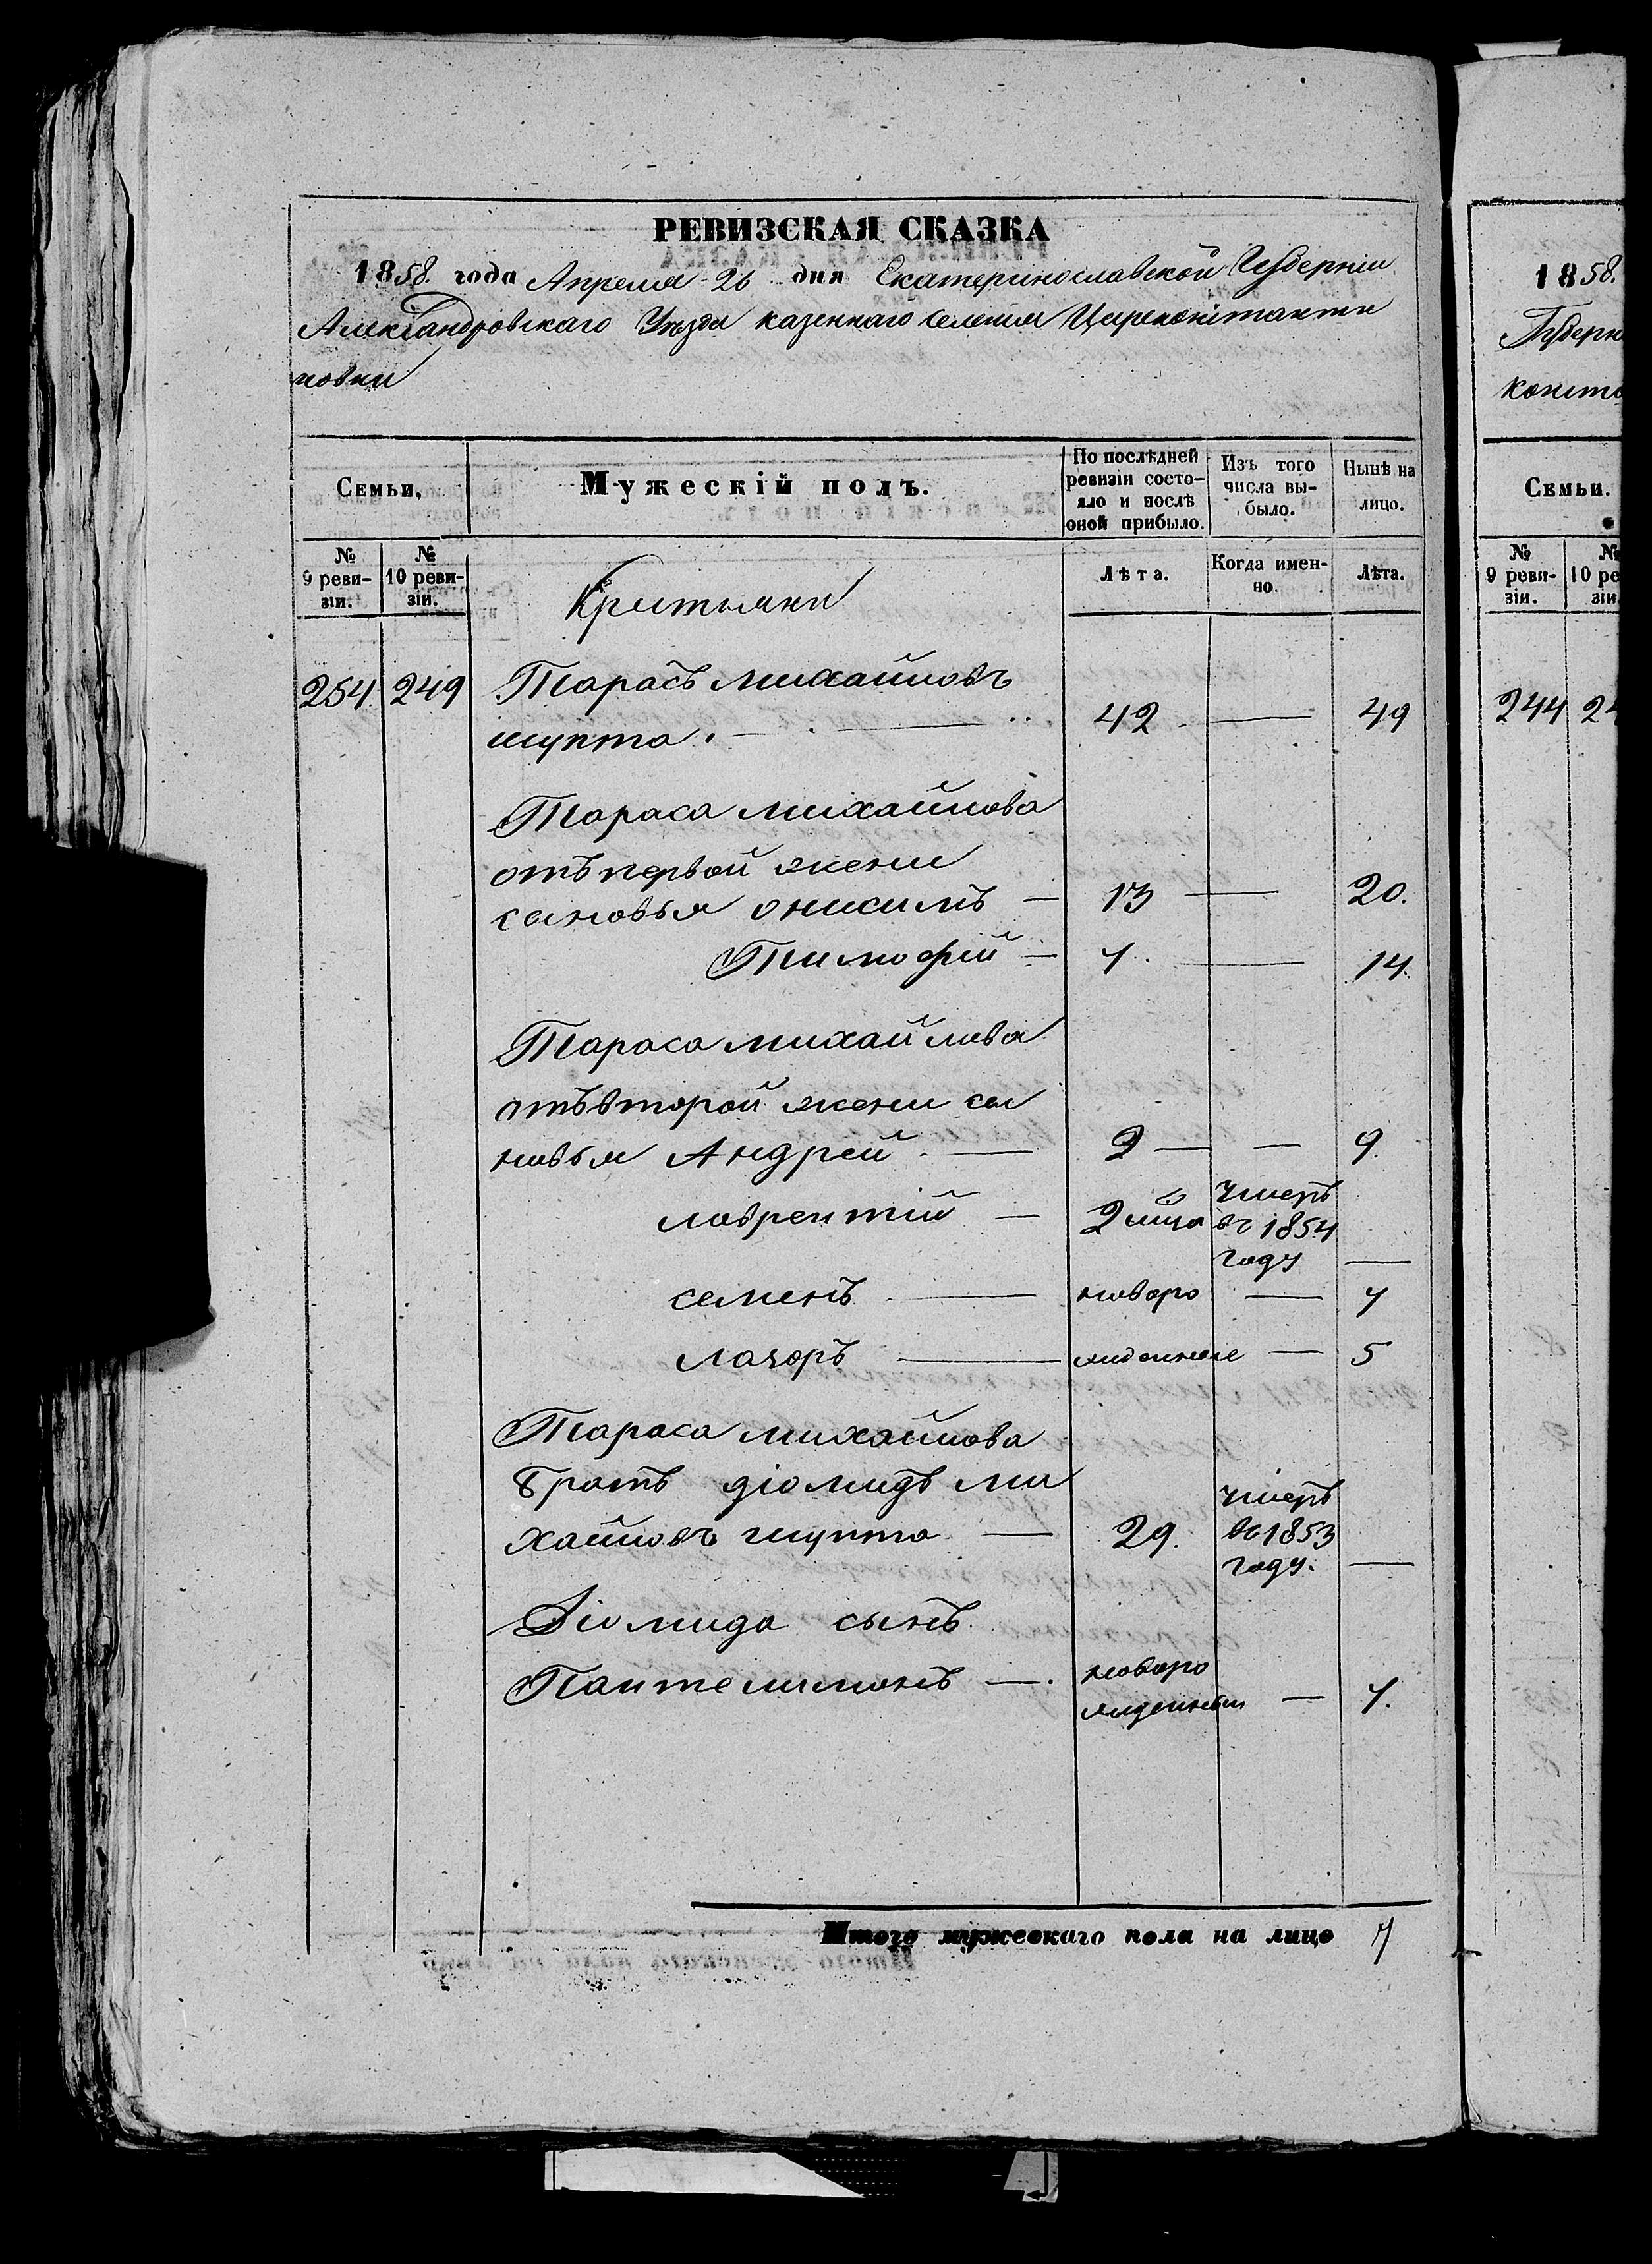 РЕВИЗСКАЯ СКАЗКА
1858. года Апреля 26 дня Екатеринославской Губерніи
Александровскаго Уѣзда казеннаго селенія Цареконстанти
новки
Семьи,
Мужескій полъ.
По послѣдней ревизіи состояло и послѣ оной прибыло.
Изъ того числа выбыло.
Нынѣ на лицо.
№ 9 ревизіи.
№ 10 ревизіи.
Крестьяне
Лѣта.
Когда именно.
Лѣта.
254 249 Тарасъ михайловъ
шупта. — 42 — 49
Тараса михайлова
отъ первой жены
сыновья онисимъ — 13 — 20.
Тимофей — 7. — 14.
Тараса михайлова
отъ второй жены сы
новья Андрей — 2 — — 9.
лаврентій — 2 м̃ца умеръ въ 1854 году —
семенъ — новоро — 7
лазоръ — жденные — 5
Тараса михайлова
братъ діомидъ ми
хайловъ шупта — 29. умеръ въ 1853 году. —
Діомида сынъ
Пантелимонъ — новорожденный — 7.
Итого мужескаго пола на лицо 7
1858.
Губерн
конста
Семьи.
№ 9 ревизіи.
№ 10 ре
зіи
244 24